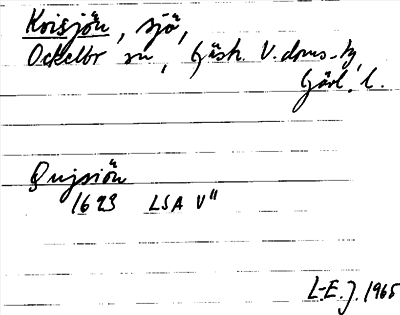 Kvisjön, sjö,
Ockelbo sn, Gästr. V. doms.
Gävl. l.
Qvijsiön
1623 LSA V"
L-E.J. 1965